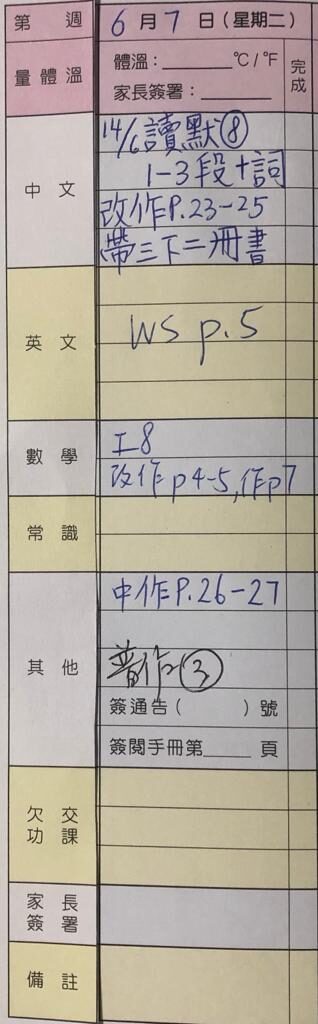 第 週 6月7日(星期二)
量體溫 體溫:______°C/°F 完成
家長簽署:______
中文 14/6讀默⑧
1-3段+詞
改作P.23-25
帶三下二冊書
英文 WS p.5
數學 工8
改作p4-5,作p7
常識
其他 中作P.26-27
普作③
簽通告( )號
簽閱手冊第____頁
欠交功課
家長簽署
備註